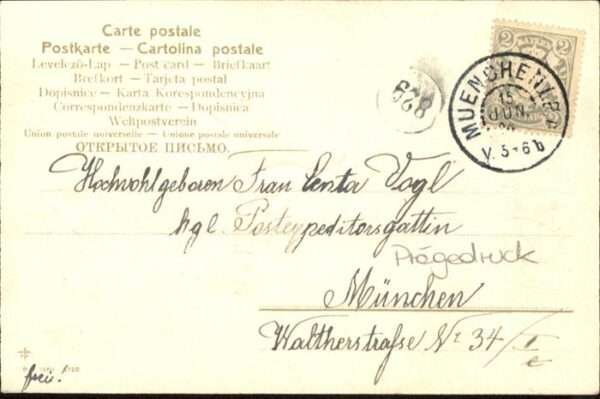 Carte postale
Postkarte — Cartolina postale
Levelező-Lap — Post card — Briefkaart
Brefkort — Tarjeta postal
Dopisnice — Karta Korespondencyjna
Correspondenzkarte — Dopisnica
Weltpostverein
Union postale universelle — Unione postale universale
ОТКРЫТОЕ ПИСЬМО.
2 2
MUENCHEN I. B. 
15
JUN.
V. 5-6 b
B
868
Hochwohlgeboren Frau Centa Vogl
kgl. Postexpeditorsgattin
Prägedruck
München
Waltherstraße Nr 34/I
frei!